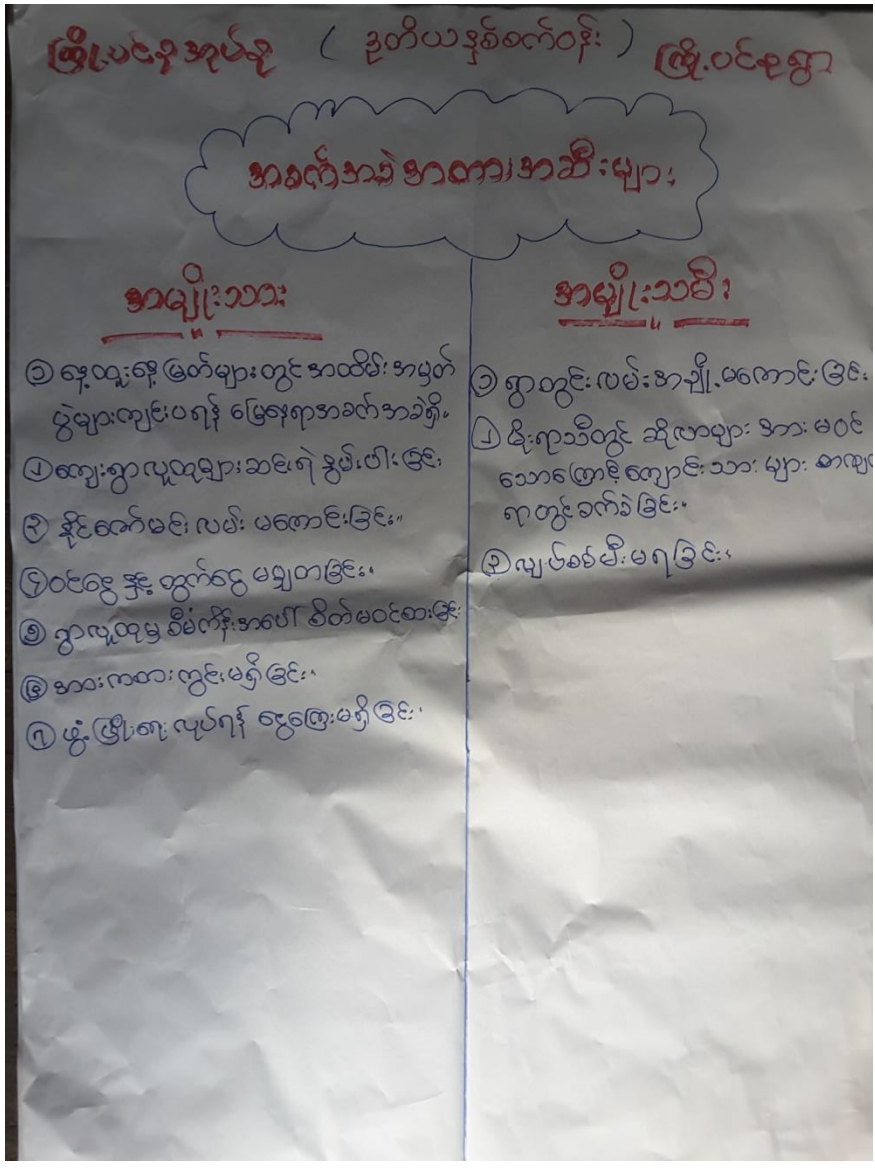 ကြို့ပင်စုအုပ်စု ( ဒုတိယနှစ်စက်ဝန်း ) ကြို့ပင်စုရွာ
အခက်အခဲအတားအဆီးများ
အမျိုးသား
၁ နေ့ထူးနေ့မြတ်များတွင်အထိမ်းအမှတ်
ပွဲများကျင်းပရန် မြေနေရာအခက်အခဲရှိ။
၂ ကျေးရွာလူထုများဆင်းရဲနွမ်းပါးခြင်း
၃ နိုင်ဇော်မင်းလမ်း မကောင်းခြင်း။
၄ ဝင်ငွေ နှင့် ထွက်ငွေ မမျှတခြင်း။
၅ ရွာလူထုမှ စီမံကိန်းအပေါ် စိတ်မဝင်စားခြင်း
၆ အားကစားကွင်းမရှိခြင်း။
၇ ဖွံ့ဖြိုးရေးလုပ်ရန် ငွေကြေးမရှိခြင်း။
အမျိုးသမီး
၁ ရွာတွင်းလမ်းအချို့မကောင်းခြင်း
၂ မိုးရာသီတွင် ဆိုလာများ အားမဝင်
သောကြောင့်ကျောင်းသားများ စာကျက်
ရာတွင်ခက်ခဲခြင်း။
၃ လျှပ်စစ်မီးမရခြင်း။